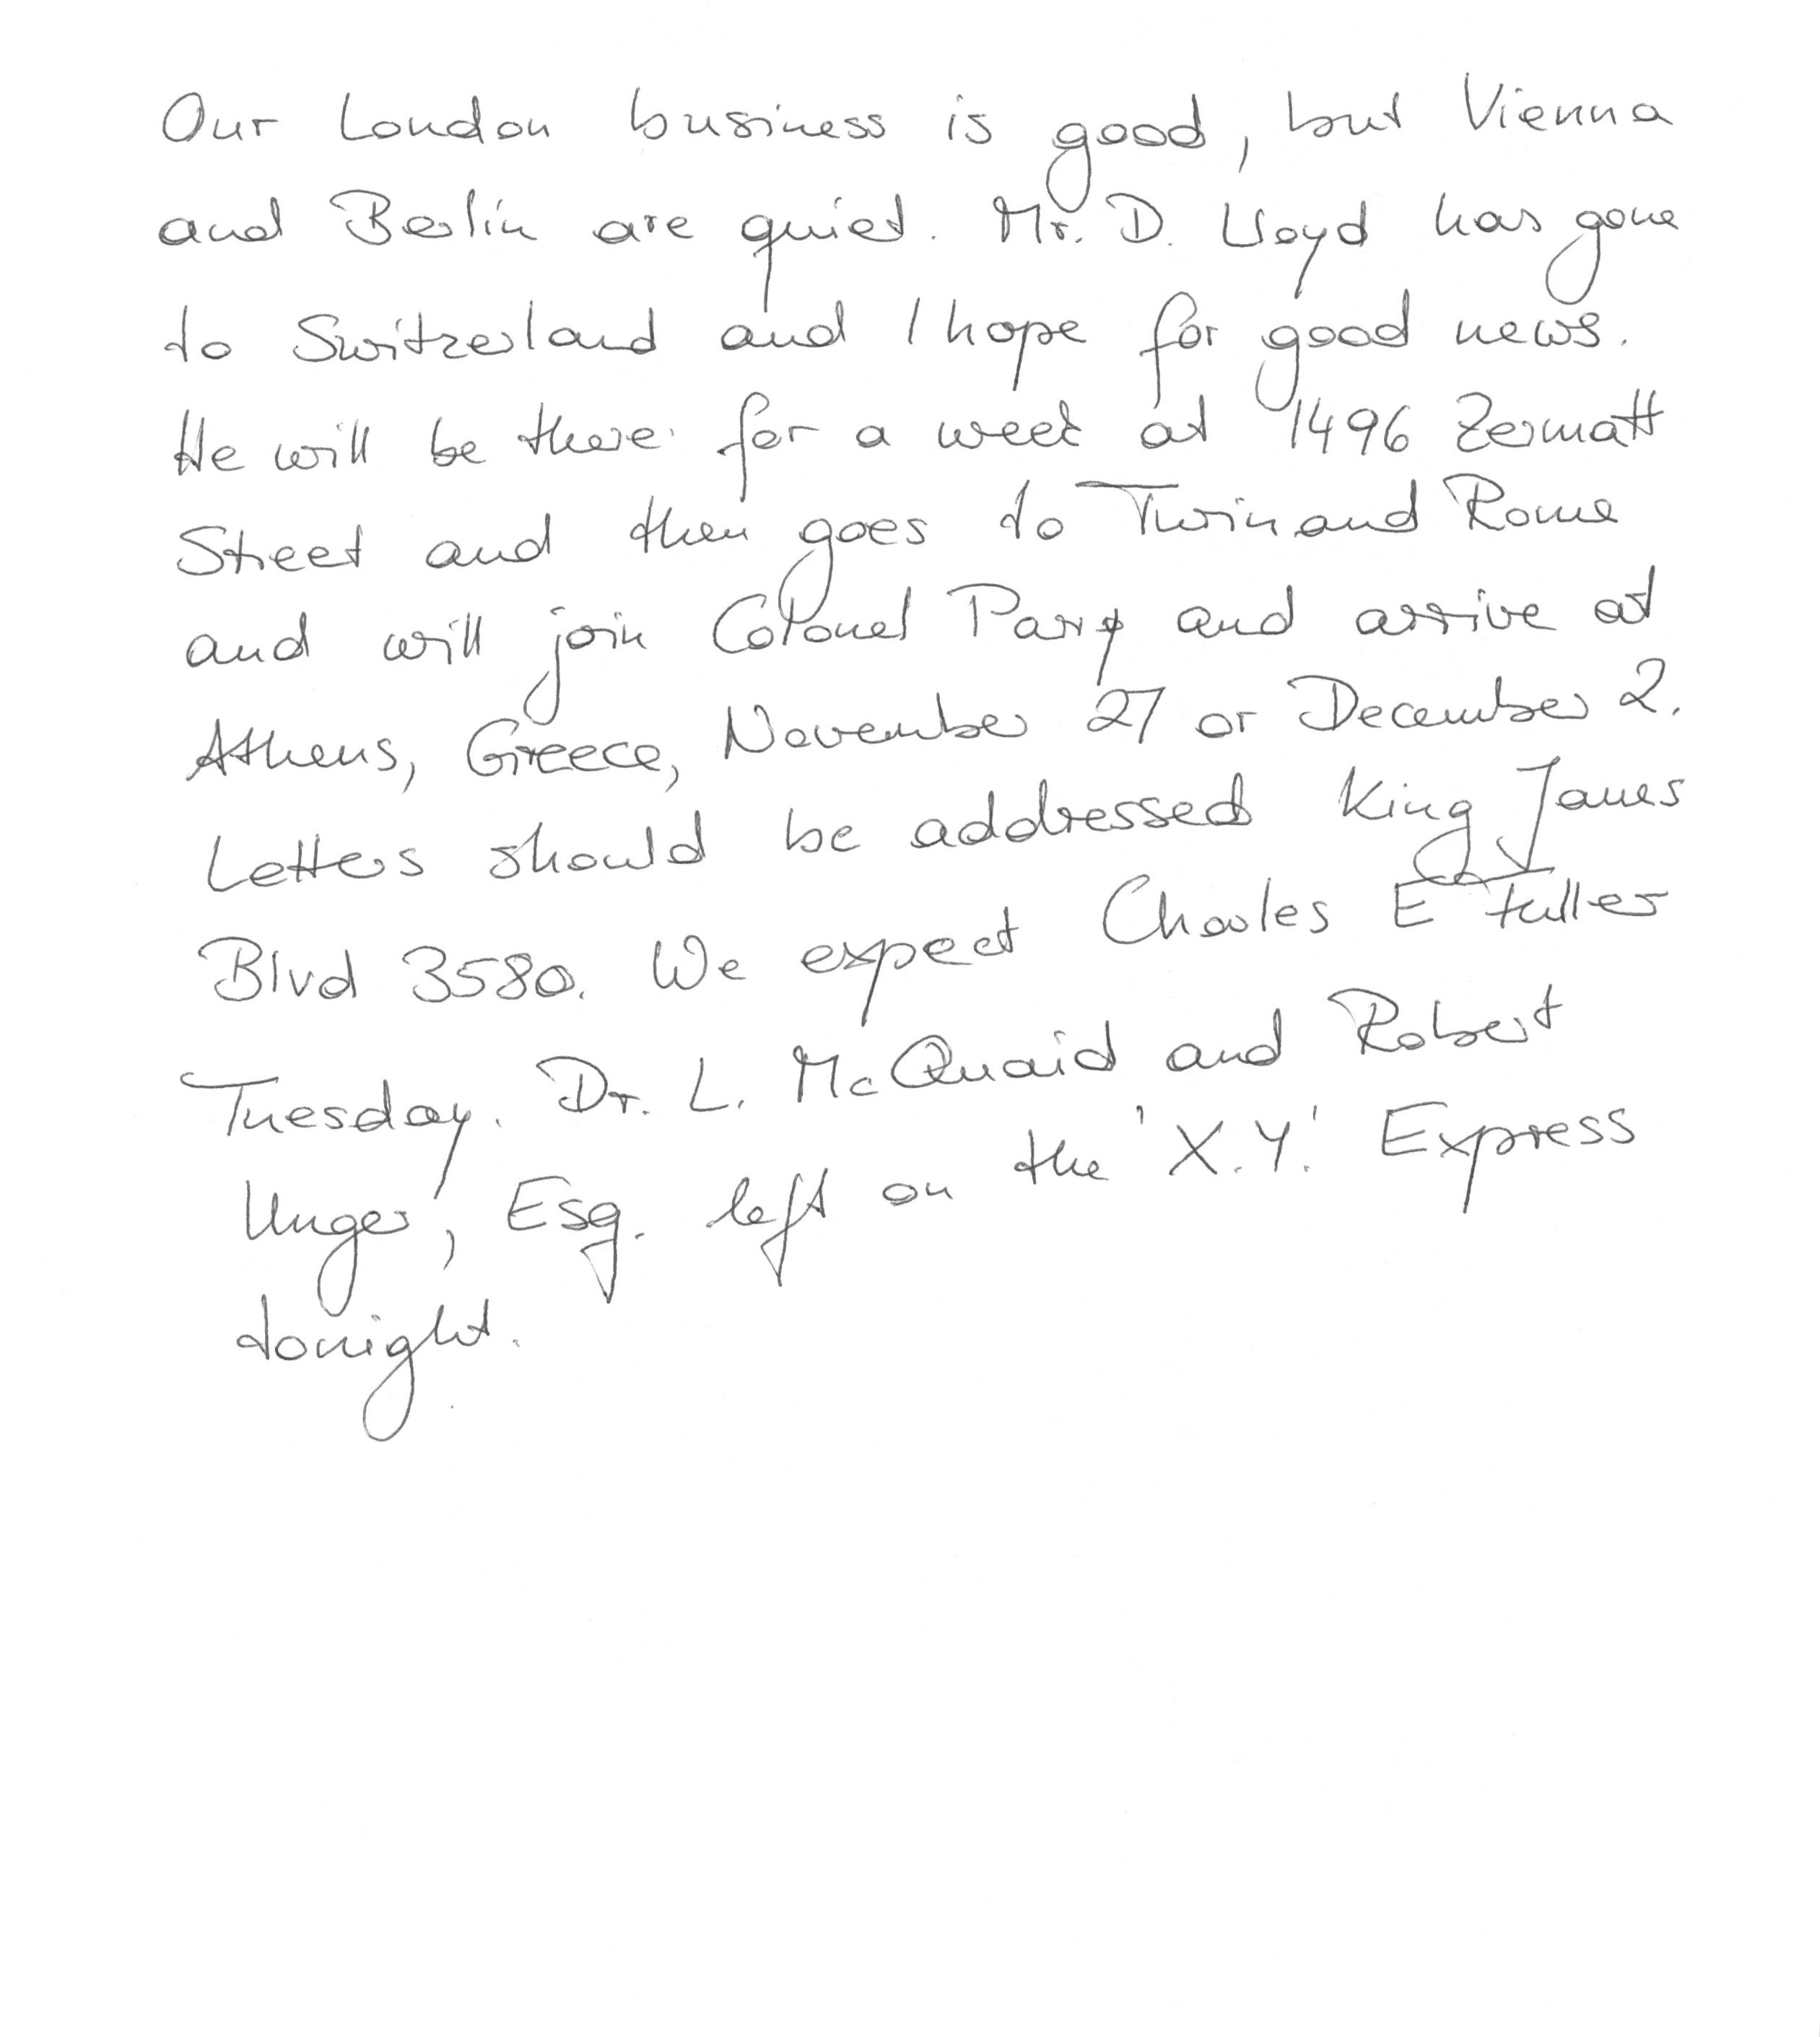 Our London business is good, but Vienna
and Berlin are quiet. Mr. D. Lloyd has gone
to Switzerland and I hope for good news.
He will be there for a week at 1496 Zermatt
Street and then goes to Turin and Rome
and will join Colonel Parry and arrive at
Athens, Greece, November 27 or December 2.
Letters should be addressed King James
Blvd 3580. We expect Charles E Fuller
Tuesday. Dr. L. McQuaid and Robert
Unger, Esq. left on the 'X.Y.' Express
tonight.